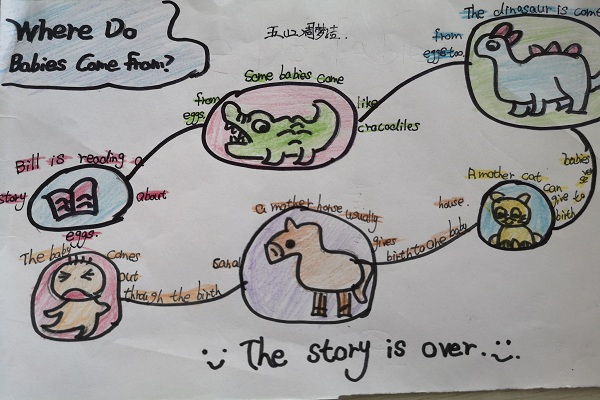 Where Do
Babies Come From?
五、2周梦洁.
The dinasaur is come
from
eggs too.
Some babies come
from
eggs,
like
cracodiles
Bill is reading a
story
about
eggs.
A mother cat
can
give to
birth
babies
a mother horse usually
gives
birth to one baby
house.
The baby
comes
out
through the birth
canal
The story is over.